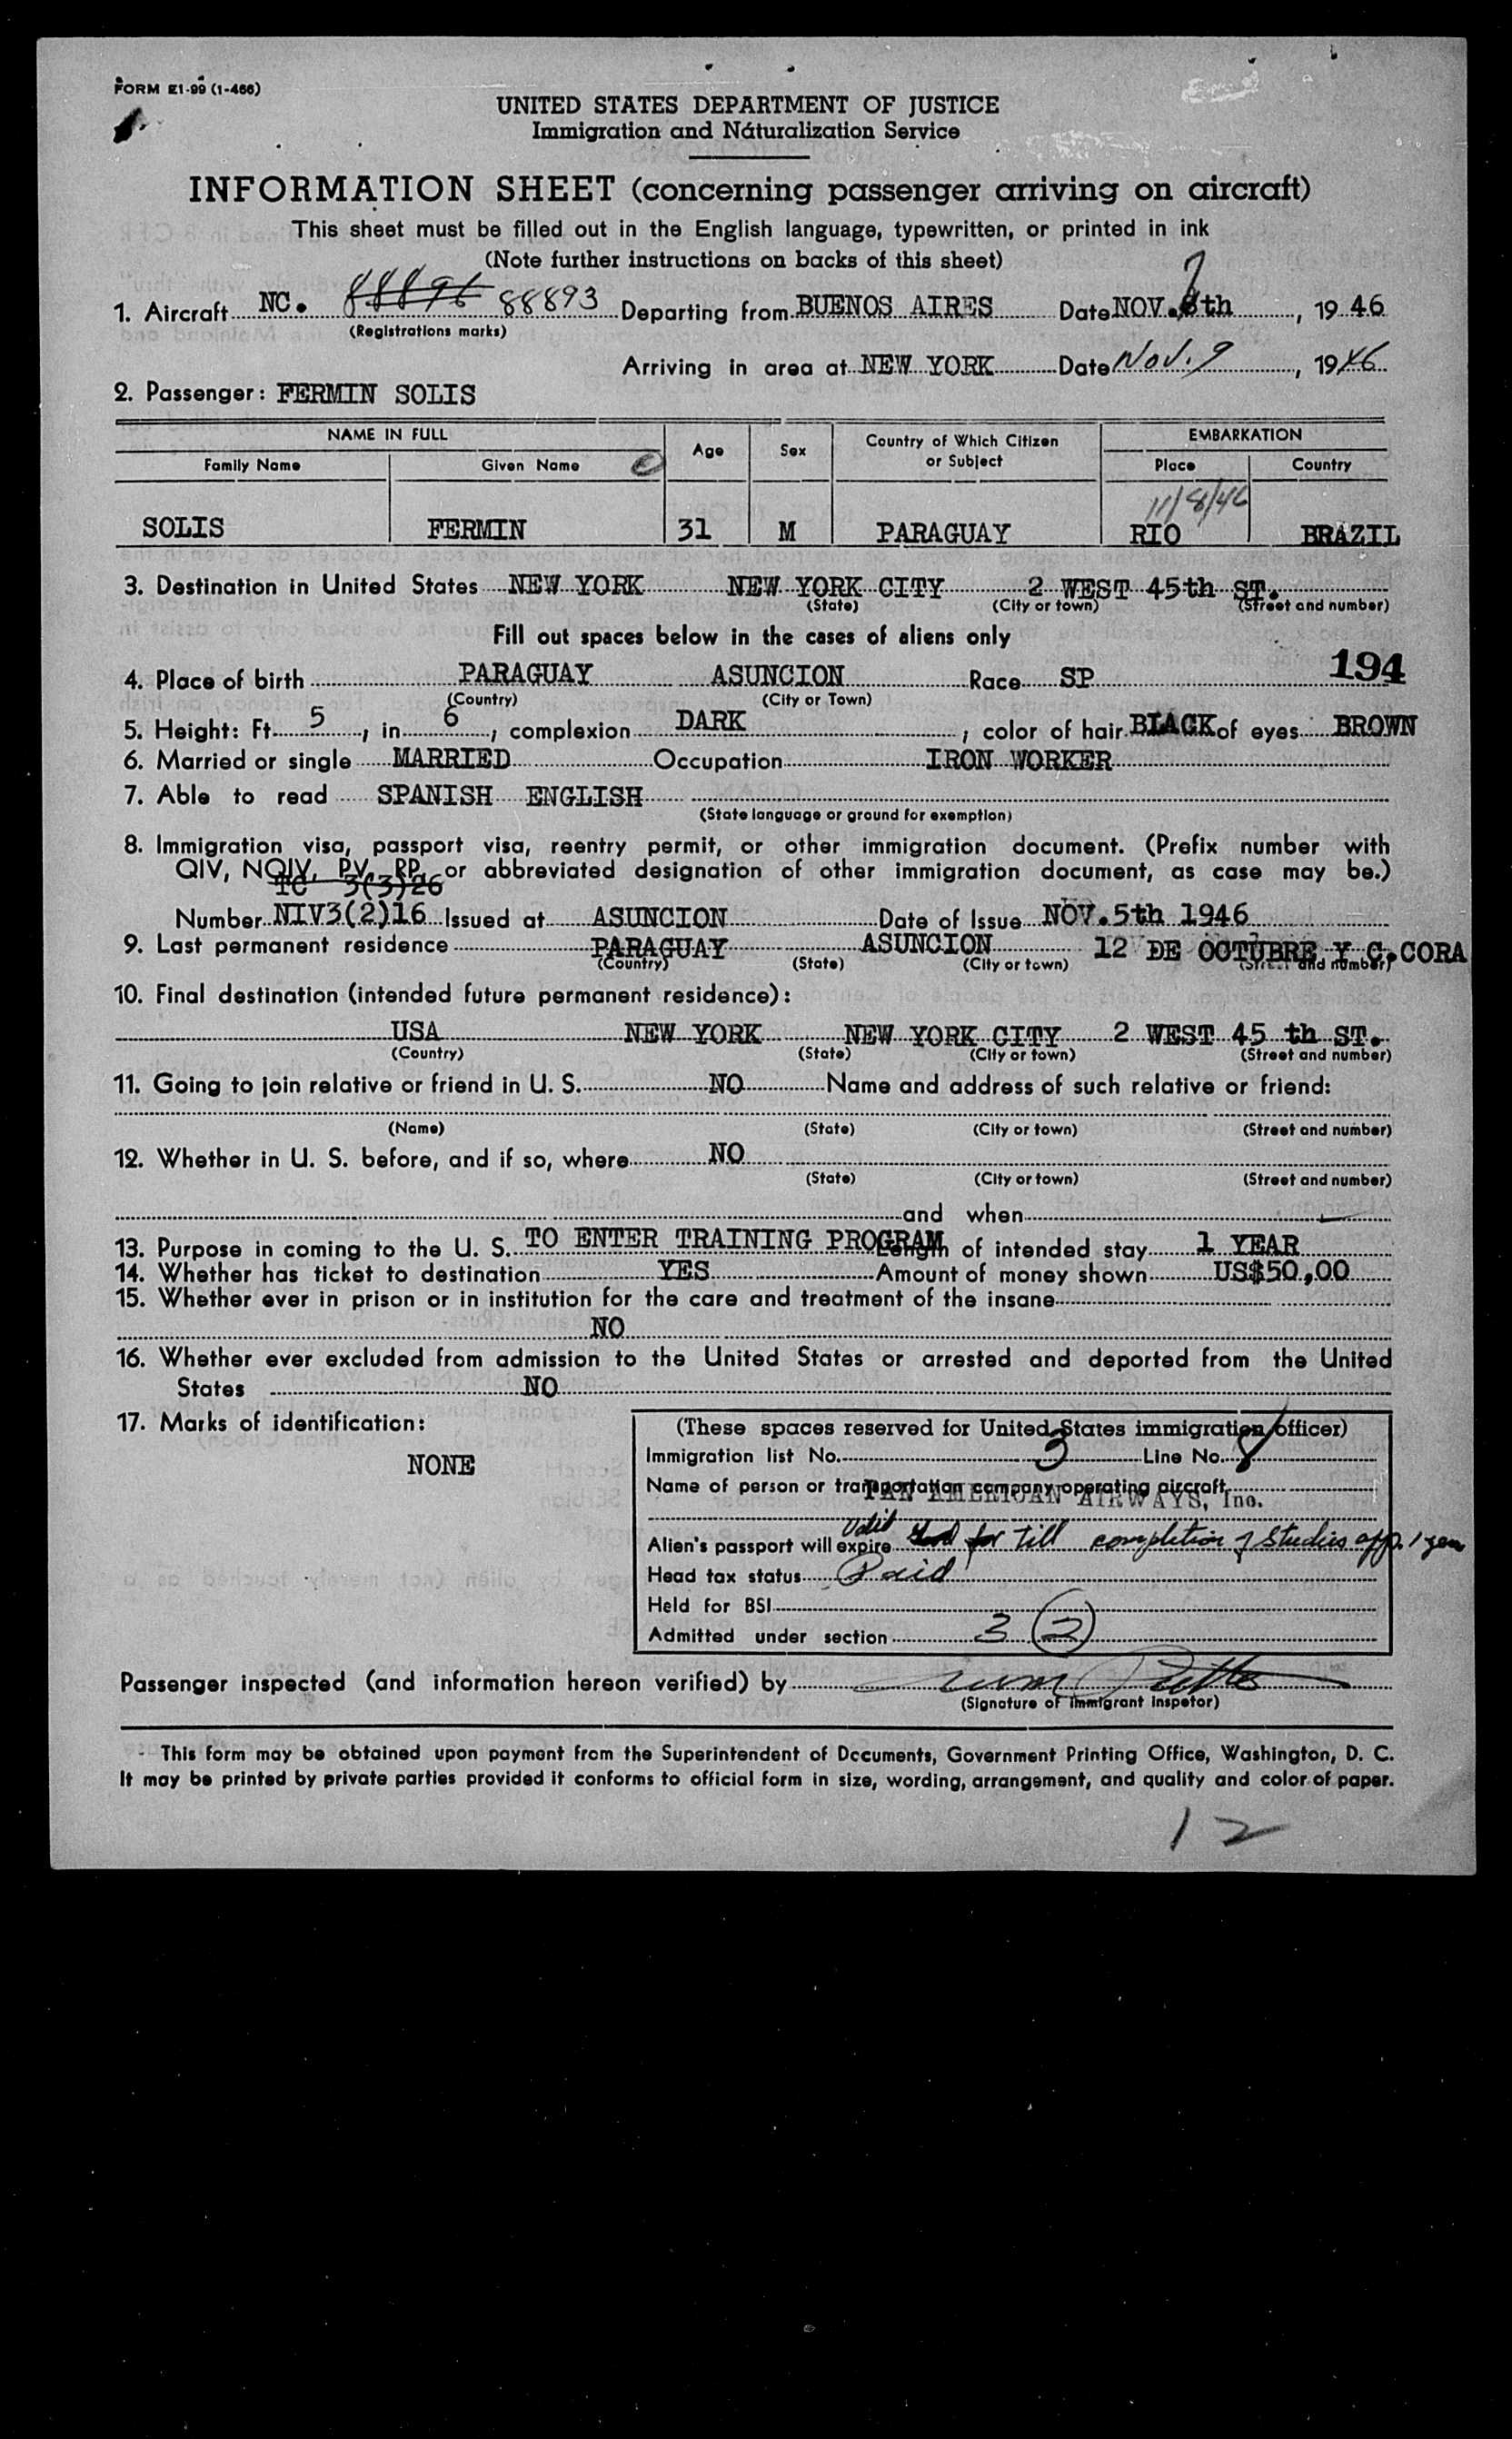 FORM E1-99 (1-466)
UNITED STATES DEPARTMENT OF JUSTICE
Immigration and Naturalization Service
INFORMATION SHEET (concerning passenger arriving on aircraft)
This sheet must be filled out in the English language, typewritten, or printed in ink
(Note further instructions on backs of this sheet)
1. Aircraft NC. 88896 88893 Departing from BUENOS AIRES Date NOV. 7 8th, 19 46
(Registrations marks)
Arriving in area at NEW YORK Date Nov. 9, 19 46
2. Passenger: FERMIN SOLIS
NAME IN FULL Age Sex Country of Which Citizen or Subject EMBARKATION
Family Name Given Name Place Country
11/8/46
SOLIS FERMIN 31 M PARAGUAY RIO BRAZIL
3. Destination in United States NEW YORK NEW YORK CITY 2 WEST 45th ST.
(State) (City or town) (Street and number)
Fill out spaces below in the cases of aliens only
194
4. Place of birth PARAGUAY ASUNCION Race SP
(Country) (City or Town)
5. Height: Ft. 5, in. 6, complexion DARK; color of hair BLACK of eyes BROWN
6. Married or single MARRIED Occupation IRON WORKER
7. Able to read SPANISH ENGLISH
(State language or ground for exemption)
8. Immigration visa, passport visa, reentry permit, or other immigration document. (Prefix number with
QIV, NQIV, PV, RP, or abbreviated designation of other immigration document, as case may be.)
TC 3(3)26
Number NIV3(2)16 Issued at ASUNCION Date of Issue NOV.5th 1946
9. Last permanent residence PARAGUAY ASUNCION 12 DE OCTUBRE Y C.CORA
(Country) (State) (City or town) (Street and number)
10. Final destination (intended future permanent residence):
USA NEW YORK NEW YORK CITY 2 WEST 45 th ST.
(Country) (State) (City or town) (Street and number)
11. Going to join relative or friend in U. S. NO Name and address of such relative or friend:
(Name) (State) (City or town) (Street and number)
12. Whether in U. S. before, and if so, where NO
(State) (City or town) (Street and number)
and when
13. Purpose in coming to the U. S. TO ENTER TRAINING PROGRAM Length of intended stay 1 YEAR
14. Whether has ticket to destination YES Amount of money shown US$50,00
15. Whether ever in prison or in institution for the care and treatment of the insane
NO
16. Whether ever excluded from admission to the United States or arrested and deported from the United
States NO
17. Marks of identification:
NONE
(These spaces reserved for United States immigration officer)
Immigration list No. 3 Line No. 8
Name of person or transportation company operating aircraft
PAN AMERICAN AIRWAYS, Inc.
Alien's passport will expire Valid for till completion of studies app. 1 year
Head tax status Paid
Held for BSI
Admitted under section 3 (2)
Passenger inspected (and information hereon verified) by
(Signature of Immigrant Inspetor)
This form may be obtained upon payment from the Superintendent of Documents, Government Printing Office, Washington, D. C.
It may be printed by private parties provided it conforms to official form in size, wording, arrangement, and quality and color of paper.
12